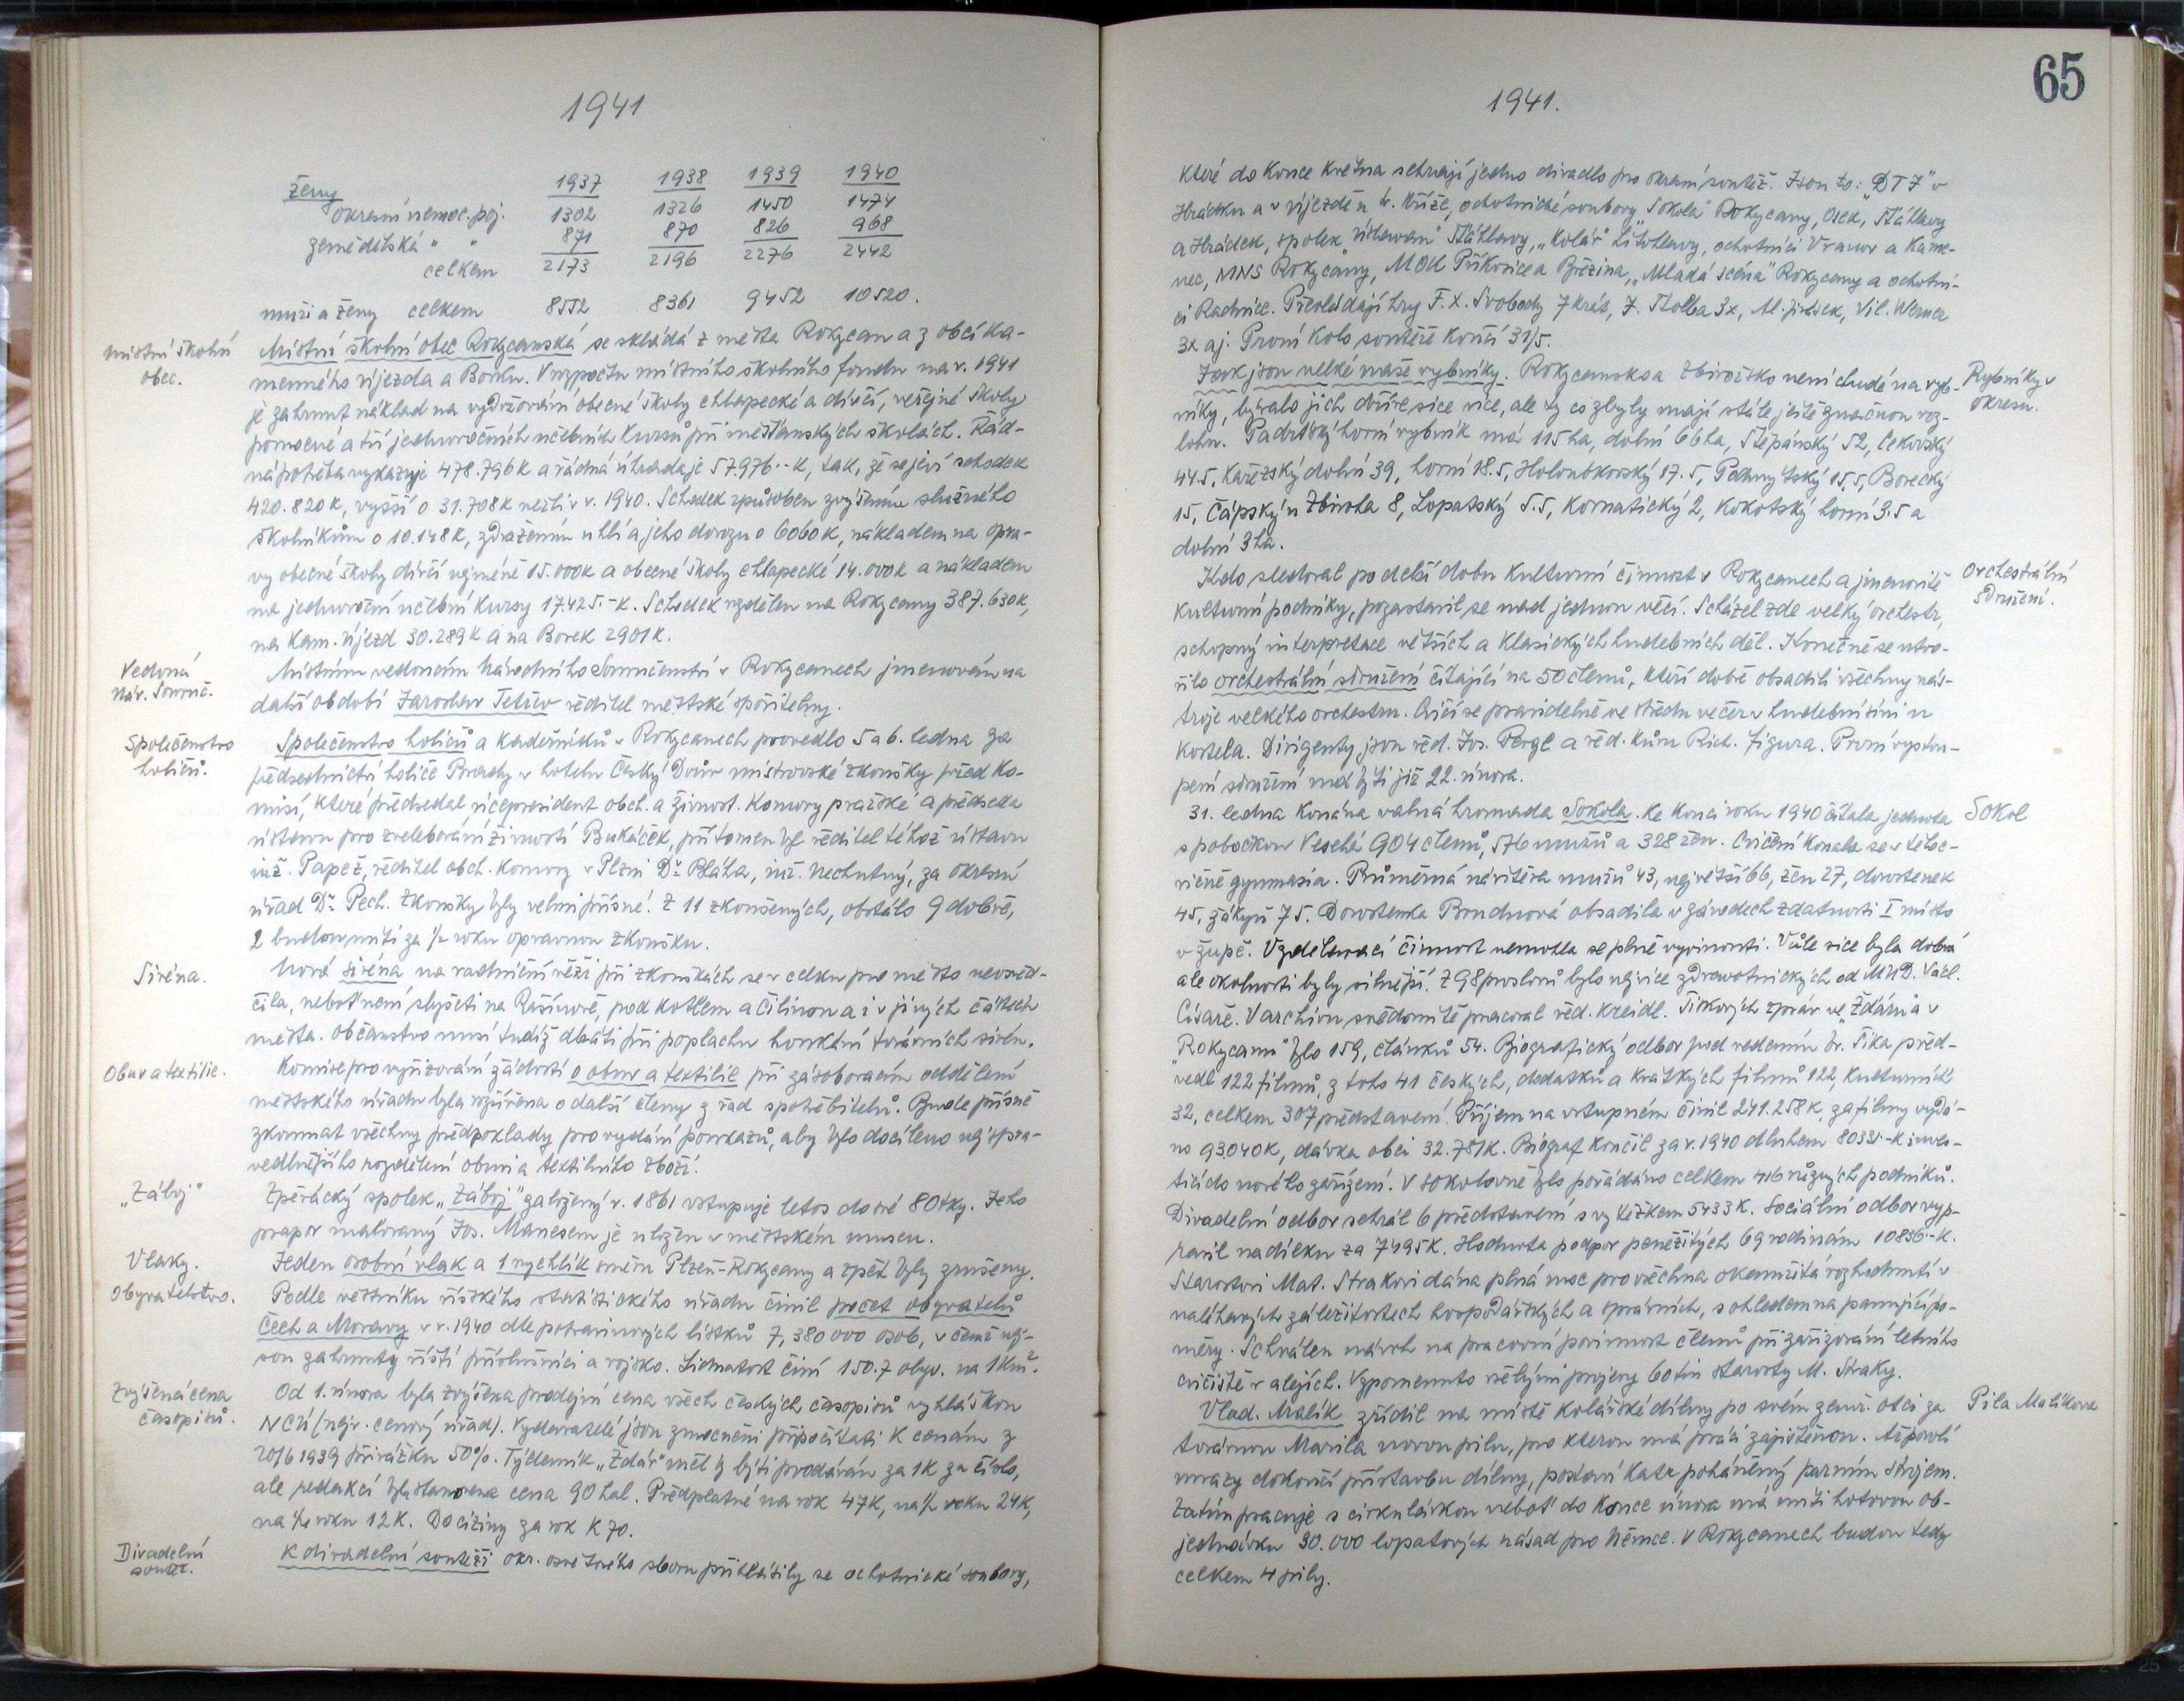 1941
Ženy 1937 1938 1939 1940
okresní nemoc. poj. 1302 1326 1450 1474
zemědělská " " 871 870 826 968
celkem 2173 2196 2276 2442
muži a ženy celkem 8552 8361 9452 10520.
Místní školní
obec.
Místní školní obec Rokycanská se skládá z města Rokycan a z obcí Ka-
menného Újezda a Borku. V rozpočtu místního školního fondu na r. 1941
je zahrnut náklad na vydržování obecné školy chlapecké a dívčí, veřejné školy
pomocné a tří jednoročních učebních kursů při měšťanských školách. Řád-
ná potřeba vykazuje 478.796 K a řádná úhrada je 57.976.-K, tak, že se jeví schodek
420.820 K, vyšší o 31.708 K nežli v r. 1940. Schodek způsoben zvýšením služného
školníkům o 10.148 K, zdražením uhlí a jeho dovozu o 6060 K, nákladem na opra-
vy obecné školy dívčí nejméně 15.000 K a obecné školy chlapecké 14.000 K a nákladem
na jednoroční učební kursy 17.425.-K. Schodek rozdělen na Rokycany 387.630 K,
na Kam. Újezd 30.289 K a na Borek 2901 K.
Vedoucí
Nár. Souruč.
Místním vedoucím Národního Souručenství v Rokycanech jmenován na
další období Jaroslav Tetřev ředitel městské spořitelny.
Společenstvo
holičů.
Společenstvo holičů a kadeřníků v Rokycanech provedlo 5 a 6. ledna za
předsednictví holiče v hotelu Český Dvůr mistrovské zkoušky před ko-
misí, které předsedal vicepresident obch. a živnost. Komory pražské a předseda
ústavu pro zvelebování živností Bukáček, přítomen byl ředitel téhož ústavu
inž. Papež, ředitel obch. komory v Plzni Dr. Bláha, inž. Nechutný, za okresní
úřad Dr. Pech. Zkoušky byly velmi přísné. Z 11 zkoušených, obstálo 9 dobře,
2 budou míti za ½ roku opravnou zkoušku.
Siréna.
Nová siréna na radniční věži při zkouškách se v celku pro město neosvěd-
čila, neboť není slyšeti na Rašínově, pod kotlem a Čilinou a i v jiných částech
města. Občanstvo musí tudíž dbáti při poplachu houkání továrních sirén.
Obuv a textilie.
Komise pro vyřizování žádostí o obuv a textilie při zásobovacím oddělení
městského úřadu byla rozšířena o další členy z řad spotřebitelů. Bude přísně
zkoumat všechny předpoklady pro vydání poukazů, aby bylo docíleno nejspra-
vedlnějšího rozdělení obuvi a textilního zboží.
„Záboj"
Zpěvácký spolek „Záboj" založený r. 1861 vstupuje letos do své 80tky. Jeho
prapor malovaný Jos. Manesem je uložen v městském museu.
Vlaky.
Jeden osobní vlak a 1 rychlík směru Plzeň-Rokycany a zpět byly zrušeny.
Obyvatelstvo.
Podle věstníku říšského statistického úřadu činil počet obyvatelů
Čech a Moravy v r. 1940 dle potravinových lístků 7,380000 osob, v čemž nej-
sou zahrnuty říští příslušníci a vojsko. Lidnatost činí 150.7 obyv. na 1 km².
Zvýšená cena
časopisů.
Od 1. února byla zvýšena prodejní cena všech českých časopisů vyhláškou
NCÚ (nejv. cenový úřad). Vydavatelé jsou zmocněni připočítati k cenám z
20/6 1939 přirážku 50%. Týdenník „Žďár" měl by býti prodáván za 1 K za číslo,
ale redakcí byla stanovena cena 90 hal. Předplatné na rok 47 K, na ½ roku 24 K,
na ¼ roku 12 K. Do ciziny za rok K 70.
Divadelní
soutěž.
K divadelní soutěži okr. osvětového sboru přihlásily se ochotnické soubory,
65
1941.
které do konce května sehrají jedno divadlo pro okresní soutěž. Jsou to: „DTJ" v
Hrádku a v Újezdě u Sv. Kříže, ochotnické soubory „Sokola" Rokycany, Osek, Šťáhlavy
a Hrádek, spolek Šťáhlavy, „Kolár" Litohlavy, ochotníci Vranov a Kame-
nec, MNS Rokycany, MOK Příkosice a Březina, „Mladá scéna" Rokycany a ochotní-
ci Radnice. Převládají hry F. X. Svobody 7 krát, J. Štolba 3x, Al. Jirásek, Vil. Werner
3x aj. První kolo soutěže končí 31/5.
Rybníky v
okresu.
Jak jsou velké naše rybníky. Rokycansko a Zbirožsko není chudé na ryb-
níky, bývalo jich dříve sice více, ale ty co zbyly mají stále ještě značnou roz-
lohu. Padrťský horní rybník má 115 ha, dolní 66 ha, Štěpánský 52, Cekovský
44.5, Kařezský dolní 39, horní 18.5, Holoubkovský 17.5, Podmýtský 15.5, Borecký
15, Čápský u Zbiroha 8, Lopatský 5.5, Kornatický 2, Kokotský horní 3.5 a
dolní 3 ha.
Orchestrální
sdružení.
Kdo sledoval po delší dobu kulturní činnost v Rokycanech a jmenovitě
kulturní podniky, pozastavil se nad jednou věcí. Scházel zde velký orchestr,
schopný interpretace větších a klasických hudebních děl. Konečně se utvo-
řilo orchestrální sdružení čítající na 50 členů, kteří dobře obsadili všechny nás-
troje velkého orchestru. Cvičí se pravidelně ve středu večer v hudební síni u
kostela. Dirigenty jsou řed. Jos. Pergl a řed. kůru Rich. Figura. První vystou-
pení sdružení má býti již 22. února.
Sokol
31. ledna konána valná hromada Sokola. Ke konci roku 1940 čítala jednota
s pobočkou Veselá 904 členů, 576 mužů a 328 žen. Cvičení konala se v těloc-
vičně gymnasia. Průměrná návštěva mužů 43, největší 66, žen 27, dorostenek
45, žákyň 75. Dorostenka Broudnová obsadila v závodech zdatnosti I místo
v župě. Vzdělavací činnost nemohla se plně vyvinouti. Vůle sice byla dobrá
ale okolnosti byly silnější. Z 98 proslovů bylo nejvíce zdravotnických od MUD. Václ.
Císaře. V archivu svědomitě pracoval řed. Kreidl. Tiskových zpráv ve „Žďáru" a v
„Rokycanu" bylo 159, článků 54. Biografický odbor pod vedením br. Tika před-
vedl 122 filmů, z toho 41 českých, dodatků a krátkých filmů 122, kulturních
32, celkem 307 představení. Příjem na vstupném činil 241.258 K, za filmy vydá-
no 93040 K, dávka obci 32.781 K. Biograf končil za r. 1940 dluhem 8035.-K inves-
ticí do nového zařízení. V sokolovně bylo pořádáno celkem 416 různých podniků.
Divadelní odbor sehrál 6 představení s výtěžkem 5433 K. Sociální odbor vyp-
ravil nadílku za 7495 K. Hodnota podpor peněžitých 69 rodinám 10836.-K.
Starostovi Mat. Strakovi dána plná moc pro všechna okamžitá rozhodnutí v
naléhavých záležitostech hospodářských a správních, s ohledem na panující po-
měry. Schválen návrh na pracovní povinnost členů při zařizování letního
cvičiště v alejích. Vzpomenuto vřelými projevy 60tin starosty M. Straky.
Pila Malíkova
Vlad. Malík zřídil na místě kolářské dílny po svém zemř. otci za
továrnou Marila novou pilu, pro kterou má práci zajištěnou. Až povolí
mrazy dokončí přístavbu dílny, postaví katr poháněný parním strojem.
Zatím pracuje s cirkulárkou neboť do konce února má míti hotovou ob-
jednávku 30.000 lopatových násad pro Němce. V Rokycanech budou tedy
celkem 4 pily.